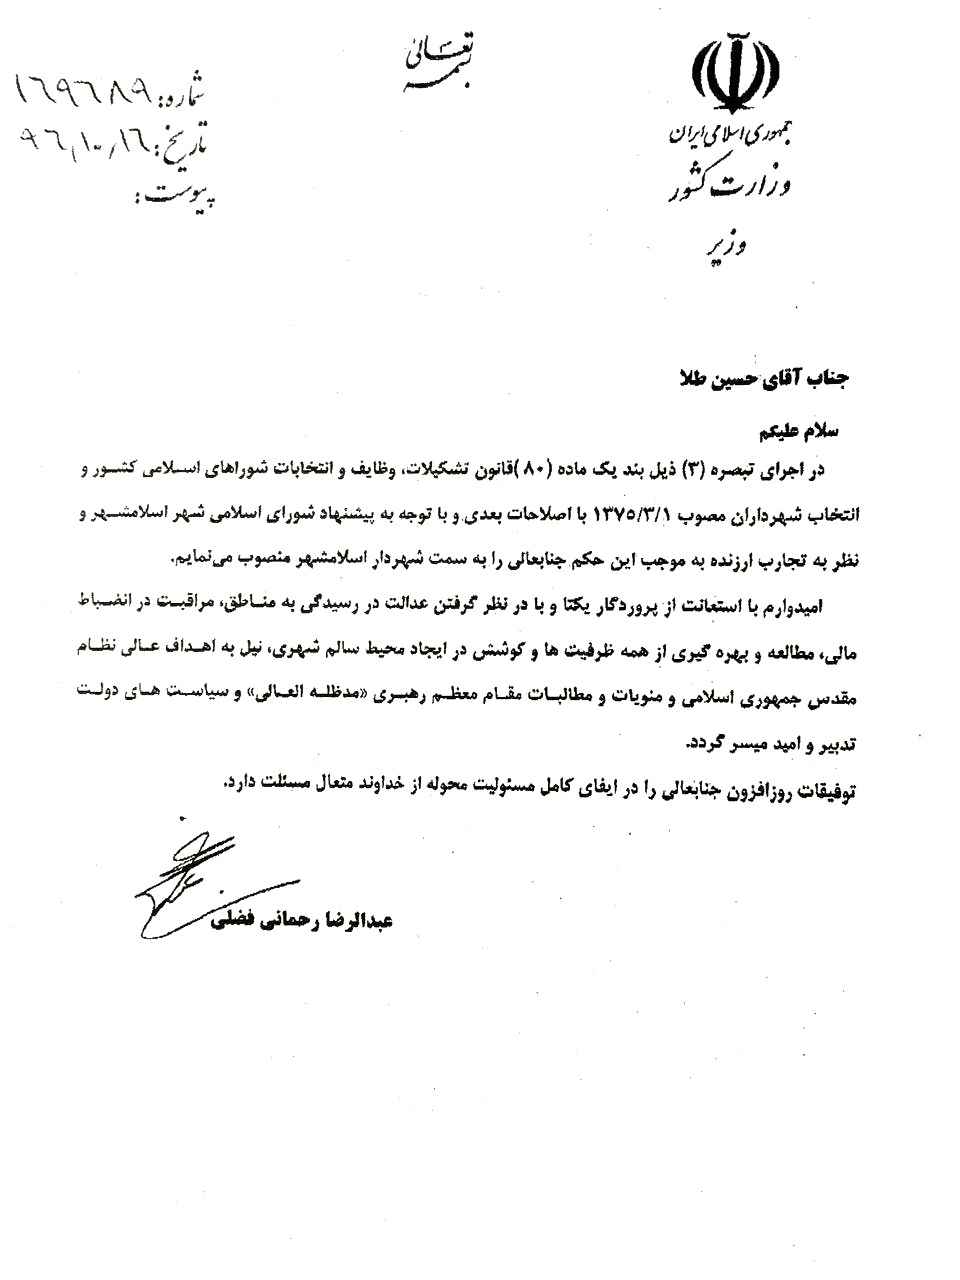 بسمه تعالی
جمهوری اسلامی ایران
وزارت کشور
وزیر
شماره: ۱۶۹۶۸۹
تاریخ: ۹۶/۱۰/۱۶
پیوست:
جناب آقای حسین طلا
سلام علیکم
در اجرای تبصره (۳) ذیل بند یک ماده (۸۰)قانون تشکیلات، وظایف و انتخابات شوراهای اسلامی کشور و
انتخاب شهرداران مصوب ۱۳۷۵/۳/۱ با اصلاحات بعدی و با توجه به پیشنهاد شورای اسلامی شهر اسلامشهر و
نظر به تجارب ارزنده به موجب این حکم جنابعالی را به سمت شهردار اسلامشهر منصوب می‌نمایم.
امیدوارم با استعانت از پروردگار یکتا و با در نظر گرفتن عدالت در رسیدگی به مناطق، مراقبت در انضباط
مالی، مطالعه و بهره گیری از همه ظرفیت ها و کوشش در ایجاد محیط سالم شهری، نیل به اهداف عالی نظام
مقدس جمهوری اسلامی و منویات و مطالبات مقام معظم رهبری «مدظله العالی» و سیاست های دولت
تدبیر و امید میسر گردد.
توفیقات روزافزون جنابعالی را در ایفای کامل مسئولیت محوله از خداوند متعال مسئلت دارد.
عبدالرضا رحمانی فضلی